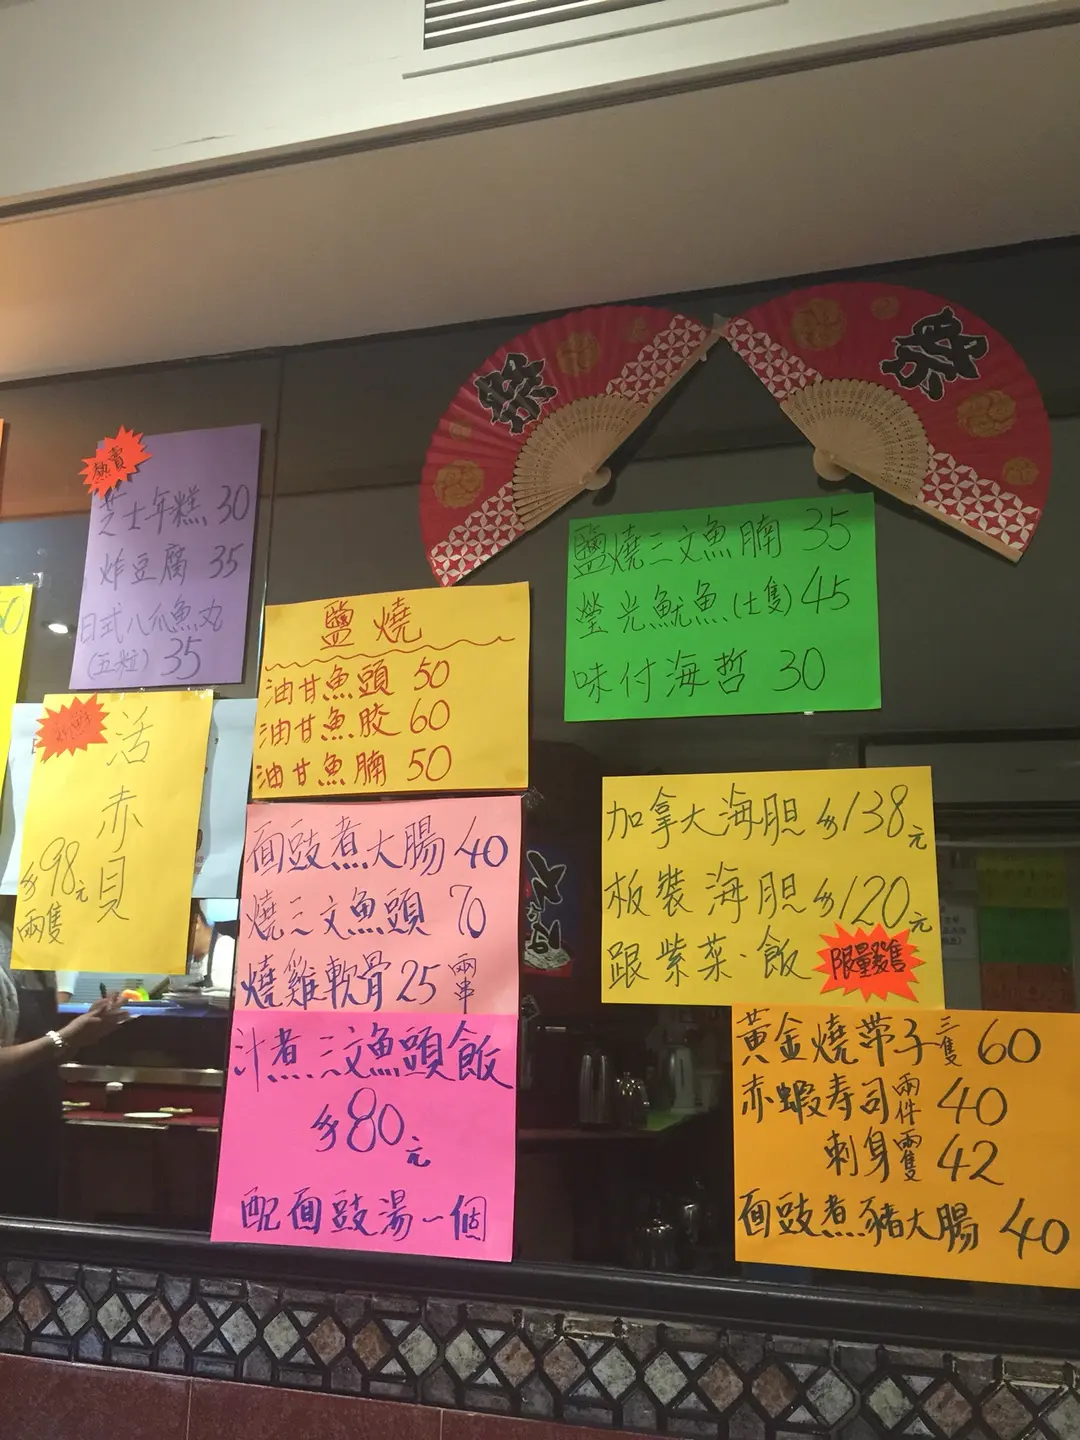 祭
祭
熱賣
芝士年糕 30
炸豆腐 35
日式八爪魚丸
(五粒) 35
鹽燒三文魚腩 35
螢光魷魚(七隻) 45
味付海哲 30
鹽燒
油甘魚頭 50
油甘魚胶 60
油甘魚腩 50
活赤貝
$98元
兩隻
面豉煮大腸 40
燒三文魚頭 70
燒雞軟骨 25 兩串
加拿大海胆 $138元
板裝海胆 $120元
跟紫菜·飯
限量發售
汁煮三文魚頭飯
$80元
配面豉湯一個
黃金燒帶子三隻 60
赤蝦寿司兩件 40
刺身兩隻 42
面豉煮豬大腸 40